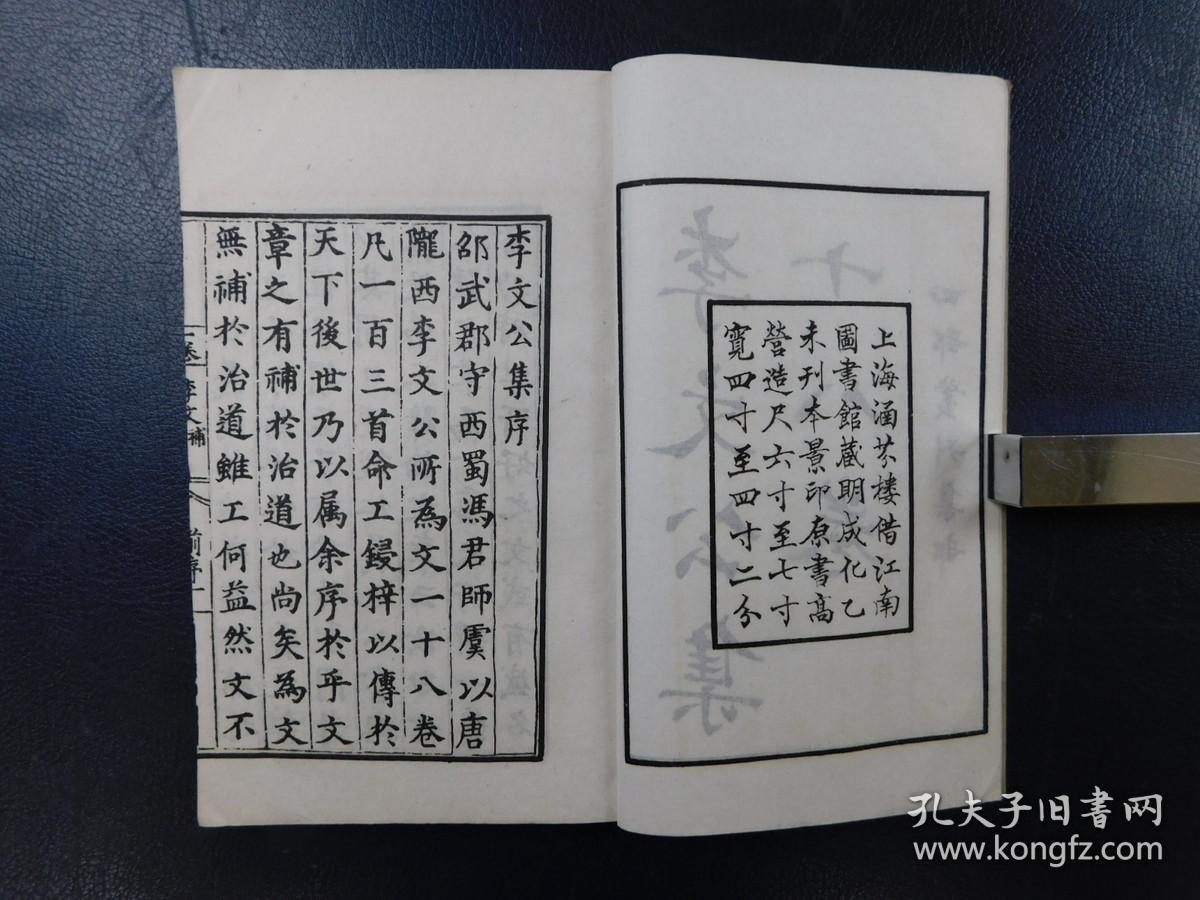 上海涵芬樓借江南
圖書館蔵明成化乙
未刊本景印原書高
營造尺六寸至七寸
寬四寸至四寸二分
李文公集序
邵武郡守西蜀馮君師虞以唐
隴西李文公所為文一十八卷
凡一百三首命工鋟梓以傳於
天下後世乃以属余序於乎文
章之有補於治道也尚矣為文
無補於治道雖工何益然文不
李文 補
前序 一
孔夫子旧書网
www.kongfz.com